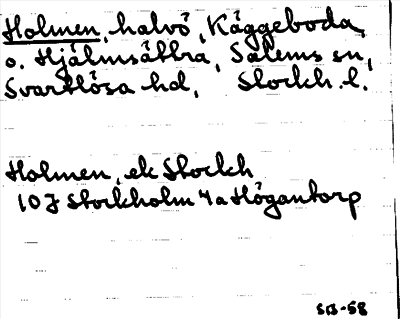 Holmen, halvö, Käggeboda
o. Hjälmsättra, Salems sn,
Svartlösa hd, Stockh. l.
Holmen, ek Stockh
10J Stockholm 4a Högantorp
SB-58